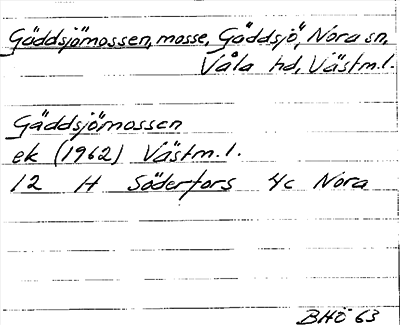 Gäddsjömossen, mosse, Gäddsjö, Nora sn,
Våla hd, Västm.l.
Gäddsjömossen
ek (1962) Västm.l.
12 H Söderfors 4c Nora
BHÖ 63